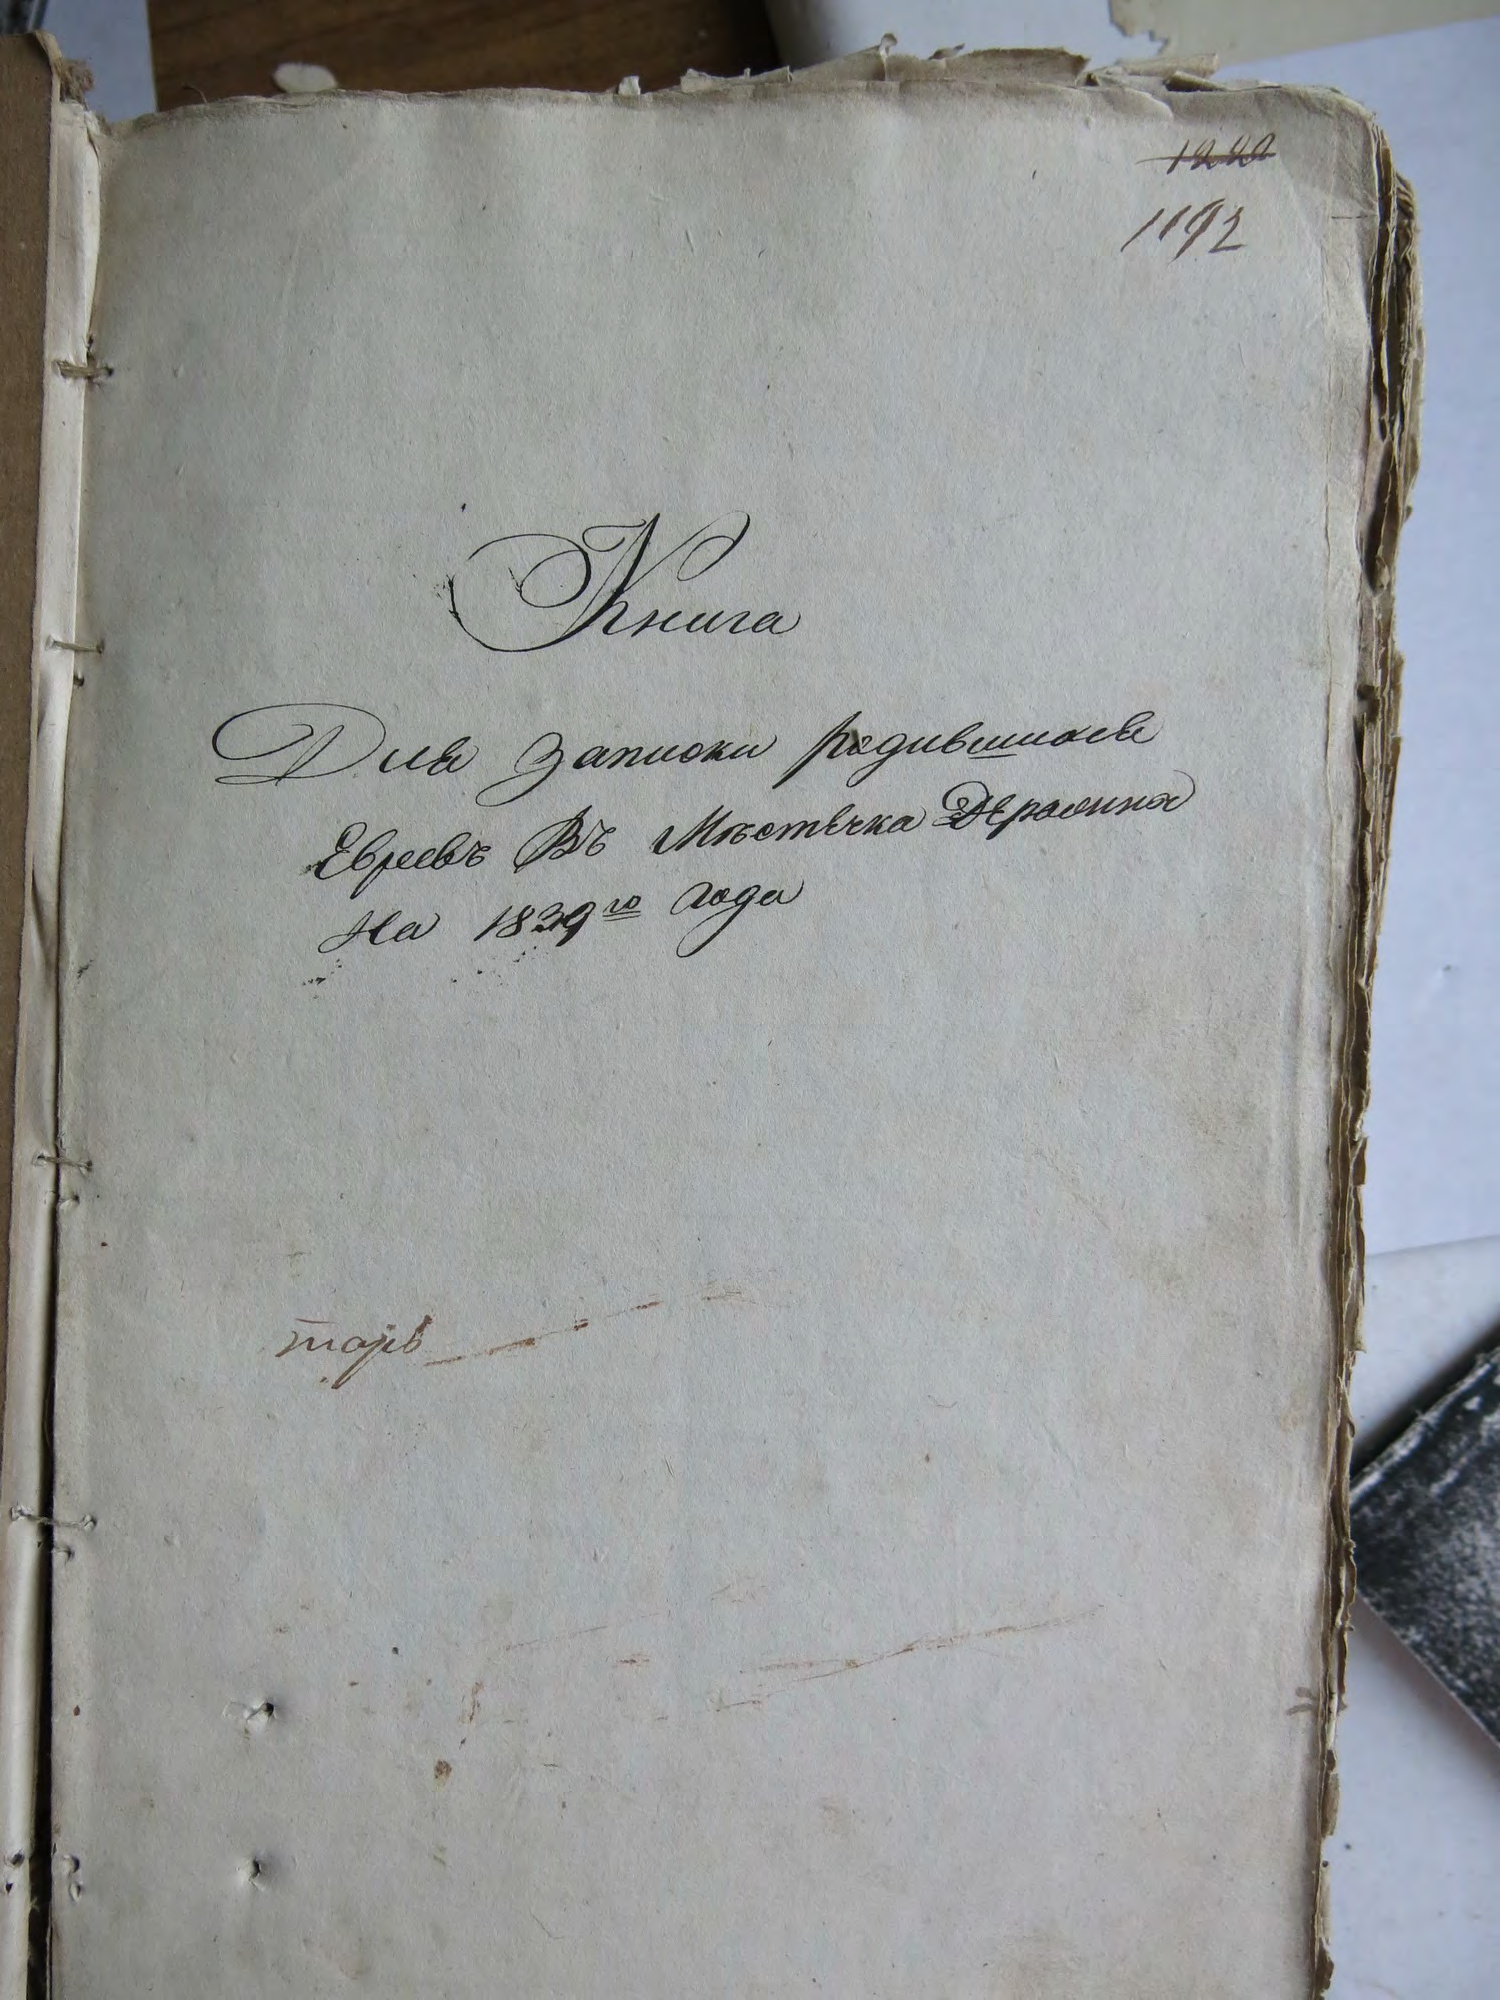 1220
1192
Книга
Для записки родившихся
Евреевъ Въ Мѣстечка Деражня
На 1839го года
тарь